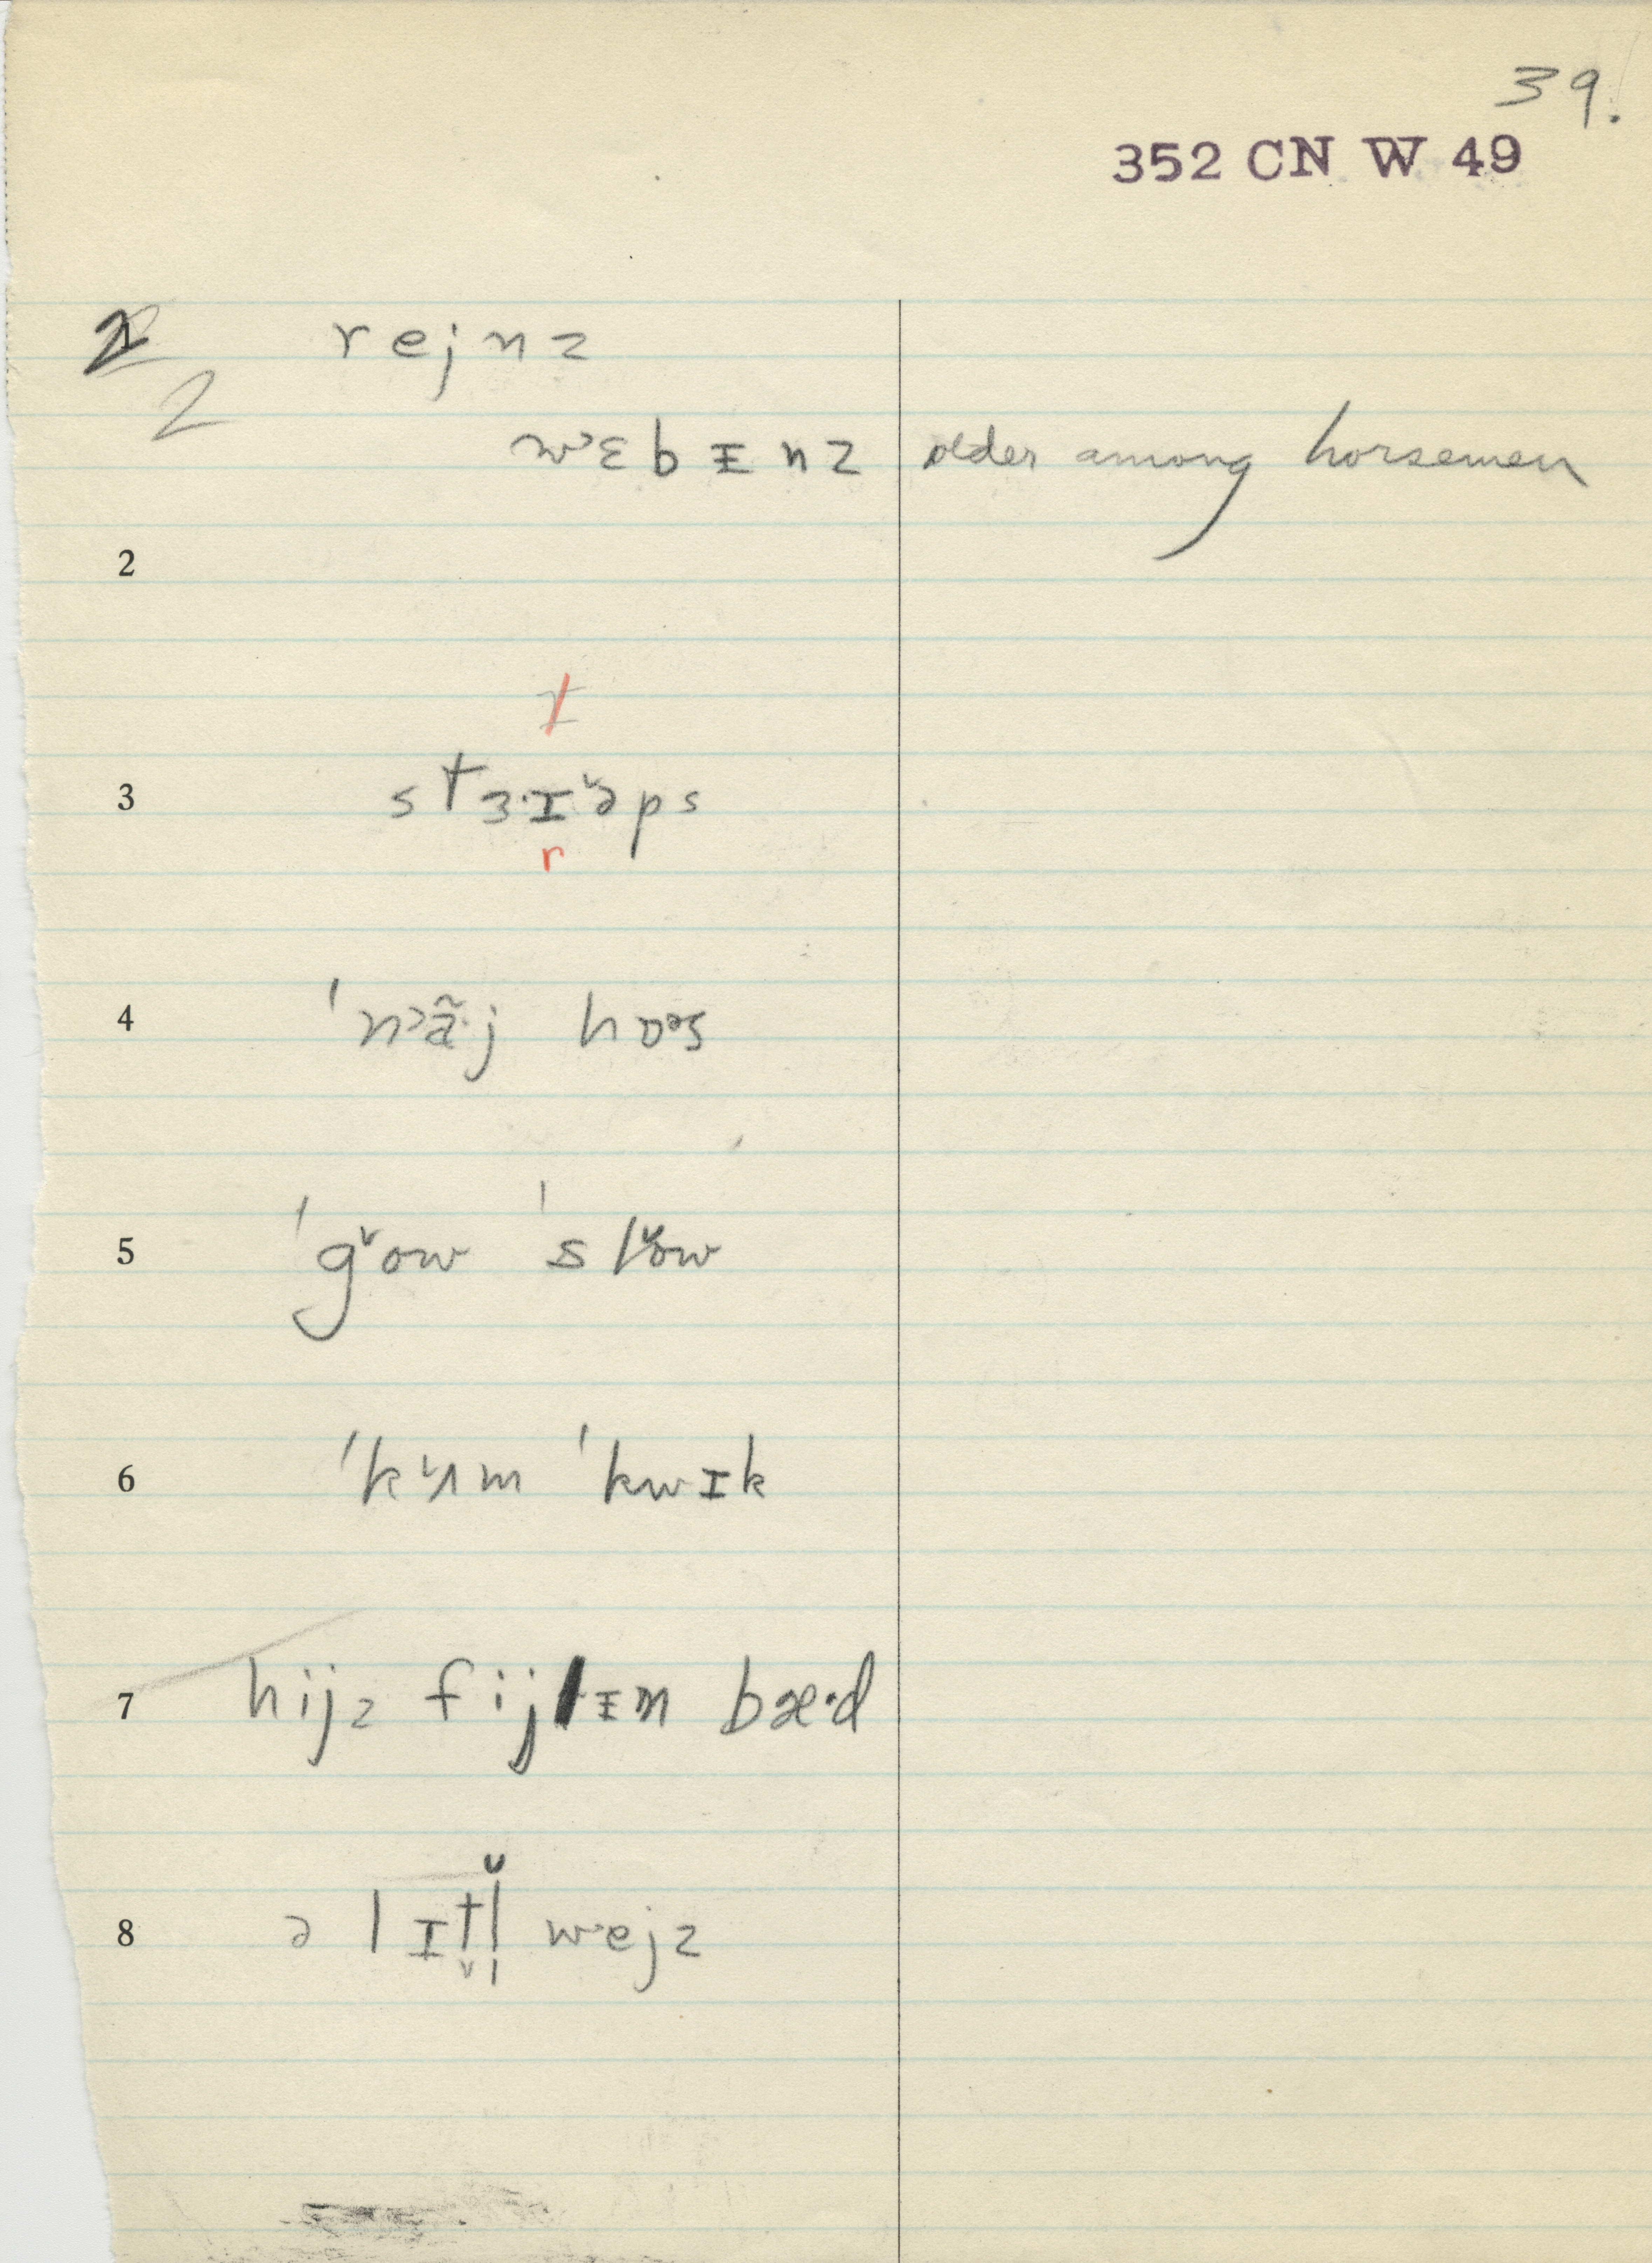 39.
352 CN W 49
2 rejnz
2
w˃ɛbᵻnz older among horsemen
2
ɪ
3 stɜ·ɪ˅əps
r
4 ˈn˃ã·j hɒᵊs
5 ˈg˅ow ˈsl˅ow
6 ˈk˅ʌm ˈkwɪk
7 hijz fijlᵻn bæ·d
8 ə lɪt̬l̩̆ w˃ejz